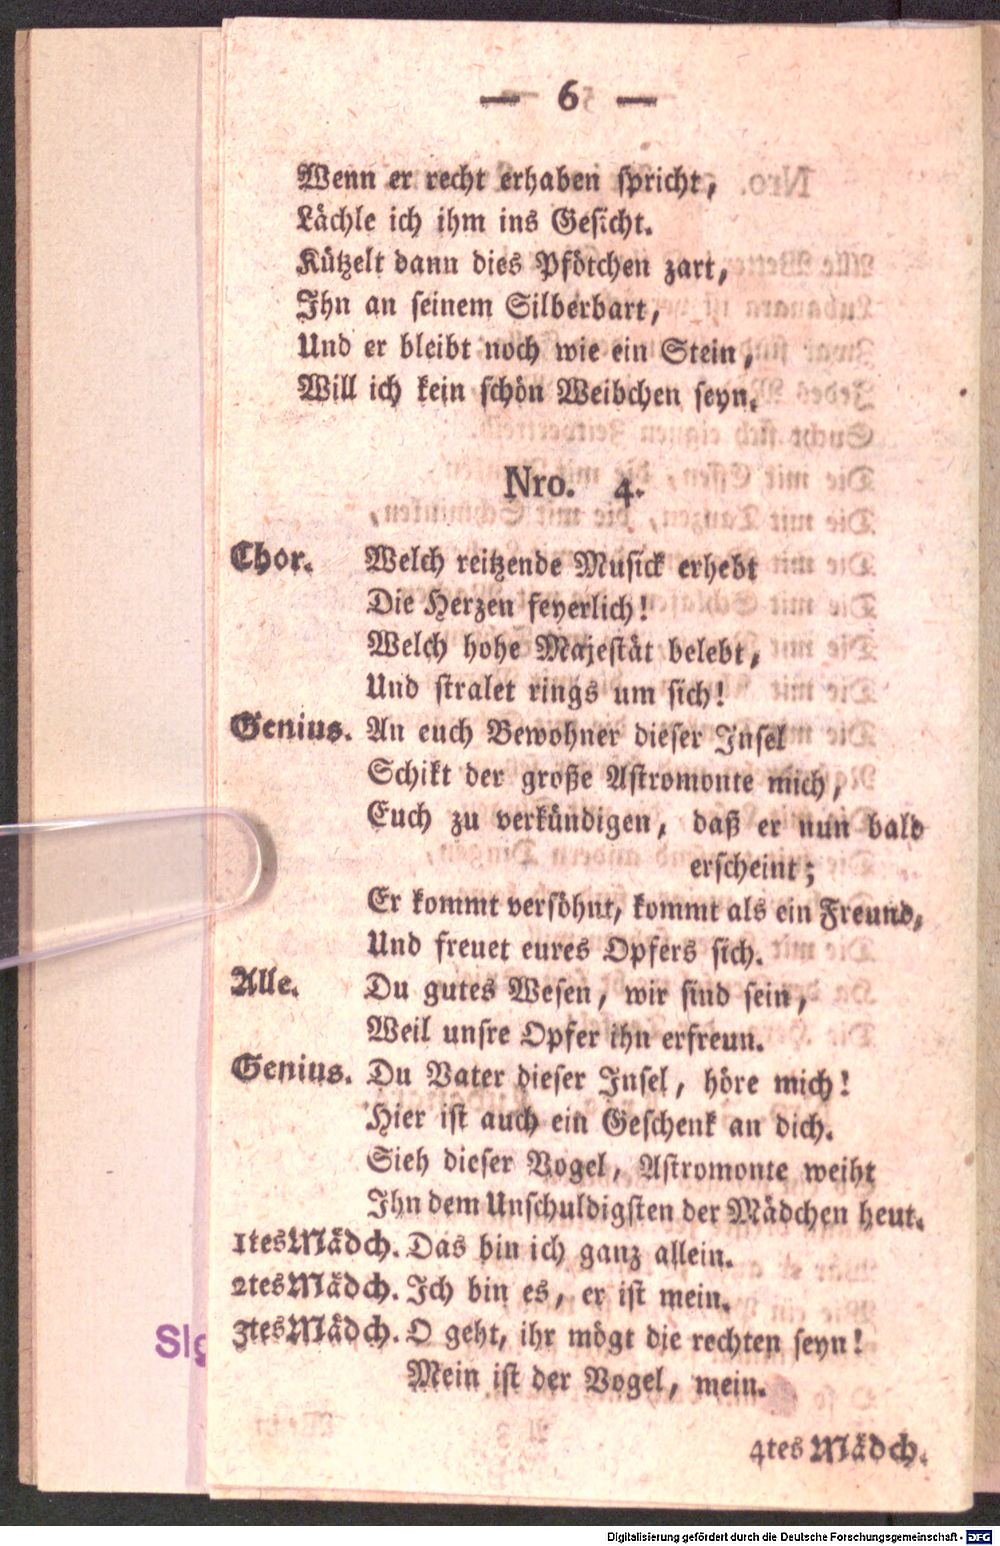 — 6 —
Wenn er recht erhaben spricht,
Lächle ich ihm ins Gesicht.
Kützelt dann dies Pfötchen zart,
Ihn an seinem Silberbart,
Und er bleibt noch wie ein Stein,
Will ich kein schön Weibchen seyn.
Nro. 4.
Chor. Welch reitzende Musick erhebt
Die Herzen feyerlich!
Welch hohe Majestät belebt,
Und stralet rings um sich!
Genius. An euch Bewohner dieser Insel
Schikt der große Astromonte mich,
Euch zu verkündigen, daß er nun bald
erscheint;
Er kommt versöhnt, kommt als ein Freund,
Und freuet eures Opfers sich.
Alle. Du gutes Wesen, wir sind sein,
Weil unsre Opfer ihn erfreun.
Genius. Du Vater dieser Insel, höre mich!
Hier ist auch ein Geschenk an dich.
Sieh dieser Vogel, Astromonte weiht
Ihn dem Unschuldigsten der Mädchen heut.
1tes Mädch. Das bin ich ganz allein.
2tes Mädch. Ich bin es, er ist mein.
3tes Mädch. O geht, ihr mögt die rechten seyn!
Mein ist der Vogel, mein.
4tes Mädch.
Digitalisierung gefördert durch die Deutsche Forschungsgemeinschaft - DFG